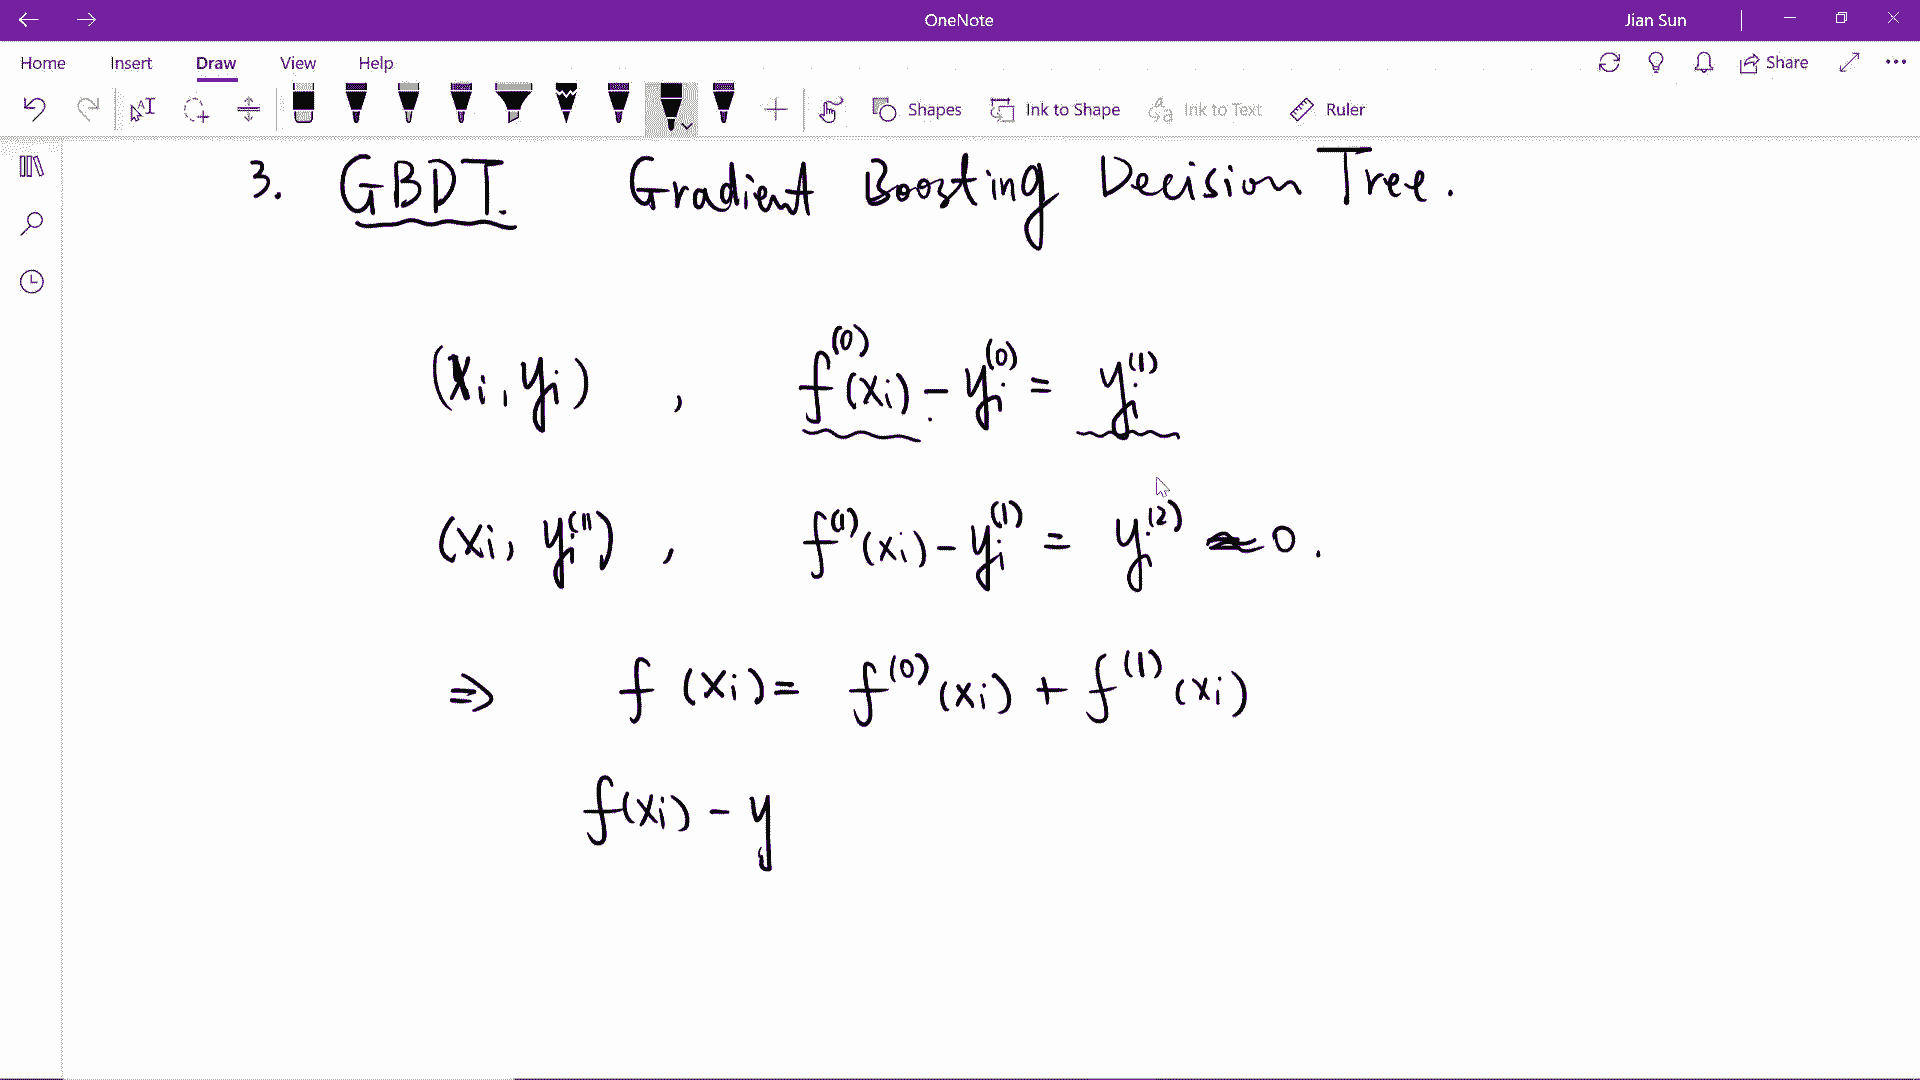 OneNote
Jian Sun
Home Insert Draw View Help
Share
Shapes Ink to Shape Ink to Text Ruler
3. GBDT. Gradient Boosting Decision Tree.
(xi, yi) , f^(0)(xi) - yi^(0) = yi^(1)
(xi, yi^(1)) , f^(1)(xi) - yi^(1) = yi^(2) ≈ 0 .
⇒ f (xi) = f^(0)(xi) + f^(1)(xi)
f(xi) - y